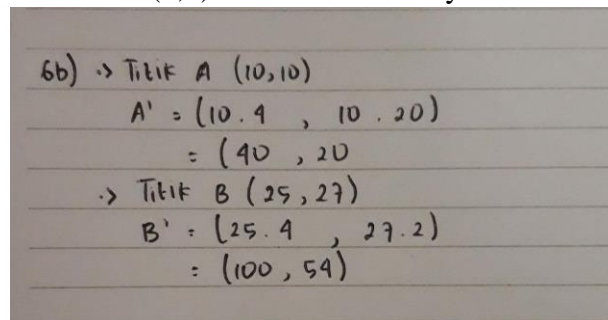 6b) -> Titik A (10,10)
A' = (10.4 , 10 . 20)
= (40 , 20
-> Titik B (25,27)
B' = (25.4 , 27.2)
= (100, 54)